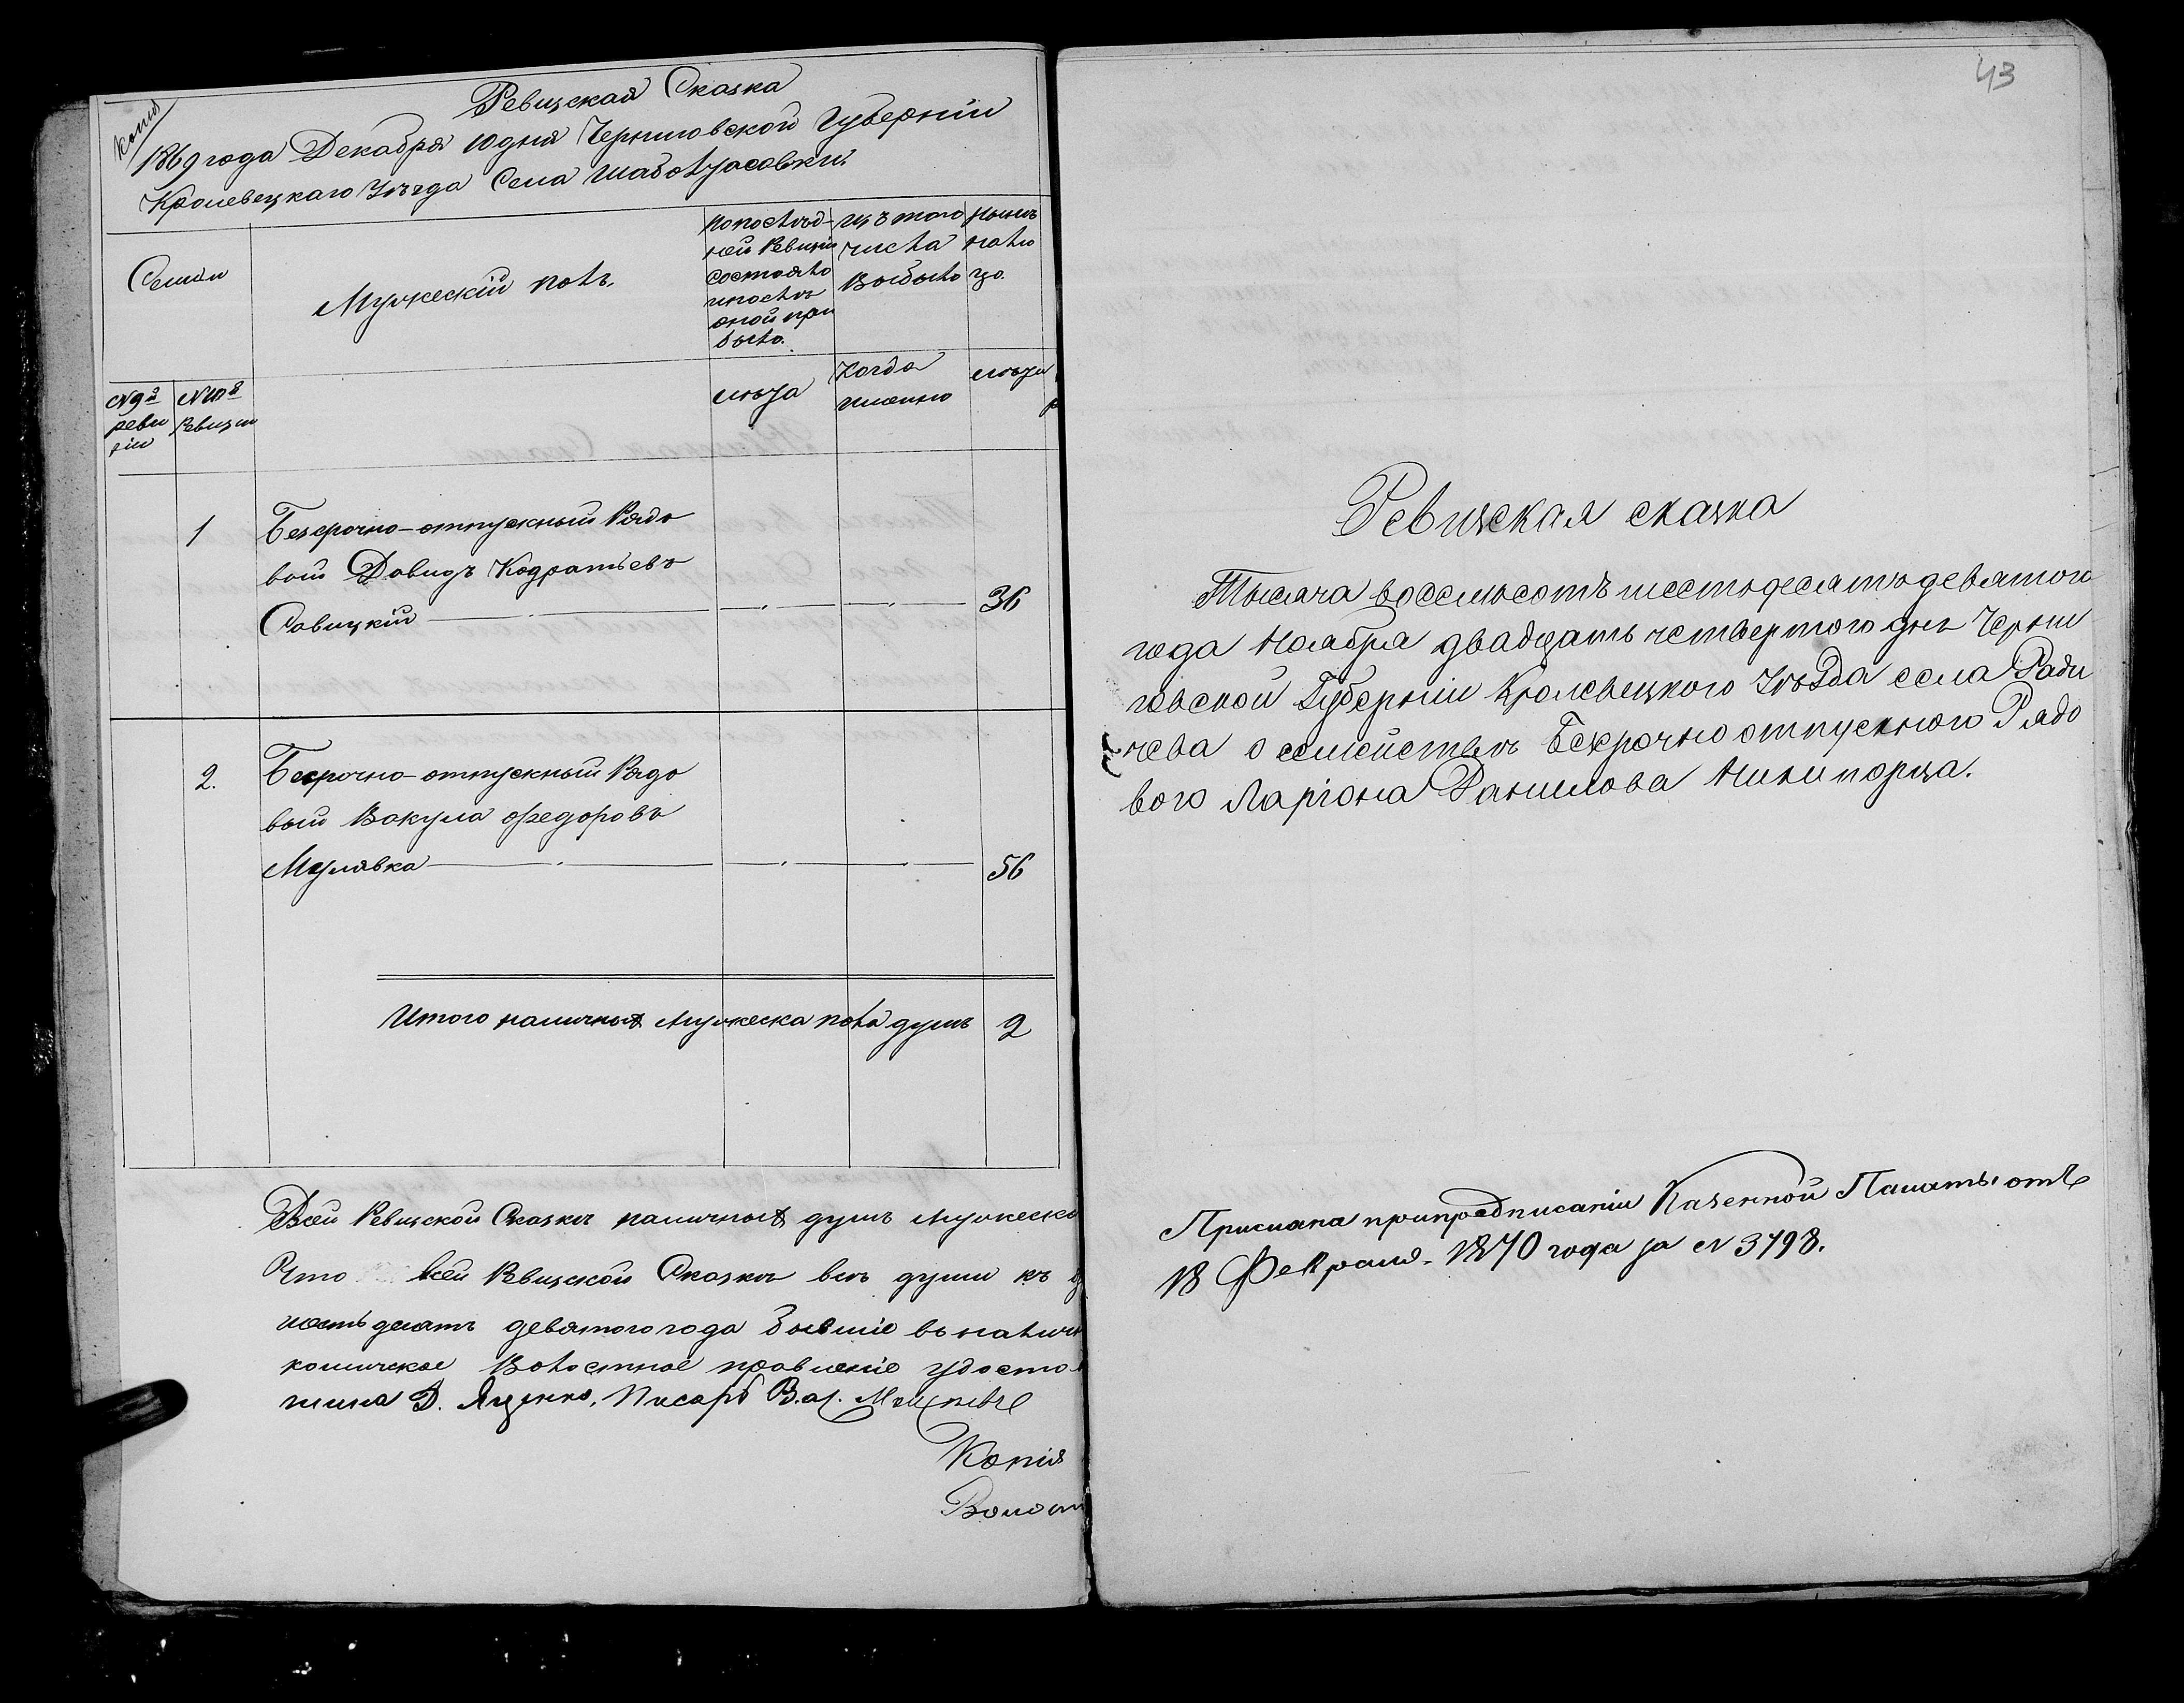 Копія
Ревизская Сказка
1869 года Декабря 10 дня Черниговской Губерніи
Кролевецкаго Уѣзда Села Шаботасовки
Семьи
Мужескій полъ.
По послѣд-
ней Ревизіи
состояло
и послѣ
оной при
было.
Изъ того
числа
выбыло
Нынѣ
нали
цо.
№ 9й
реви
зіи
№ 10й
Ревизіи
лѣта
Когда
именно
лѣта
1
Безсрочно-отпускный Рядо
вой Давидъ Кодратьевъ
Савицкій
36
2.
Бесрочно-отпускный Рядо
вый Вакула Федоровъ
Мулявка
56
Итого наличныхъ мужеска пола душъ 2
Всей Ревизской Сказкѣ наличныхъ душъ мужеска
Что всей Ревизской Сказкѣ всѣ души къ
шестьдесятъ девятого года бывшіе въ налич
комическое Волостное правленіе удосто
шина Д. Яценко, Писарь Вас.
Копія
Волост
43
Ревизская сказка
Тысяча восемьсотъ шестьдесятъ девятого
года Ноября двадцать четвертого дня Черни
говской Губерніи Кролевецкого Уѣзда села Ради
чева о семействѣ Безсрочно отпускного Рядо
вого Ларіона Данилова Никипорца.
Прислана при предписаніи Казенной Палаты отъ
18 Февраля 1870 года за № 3798.